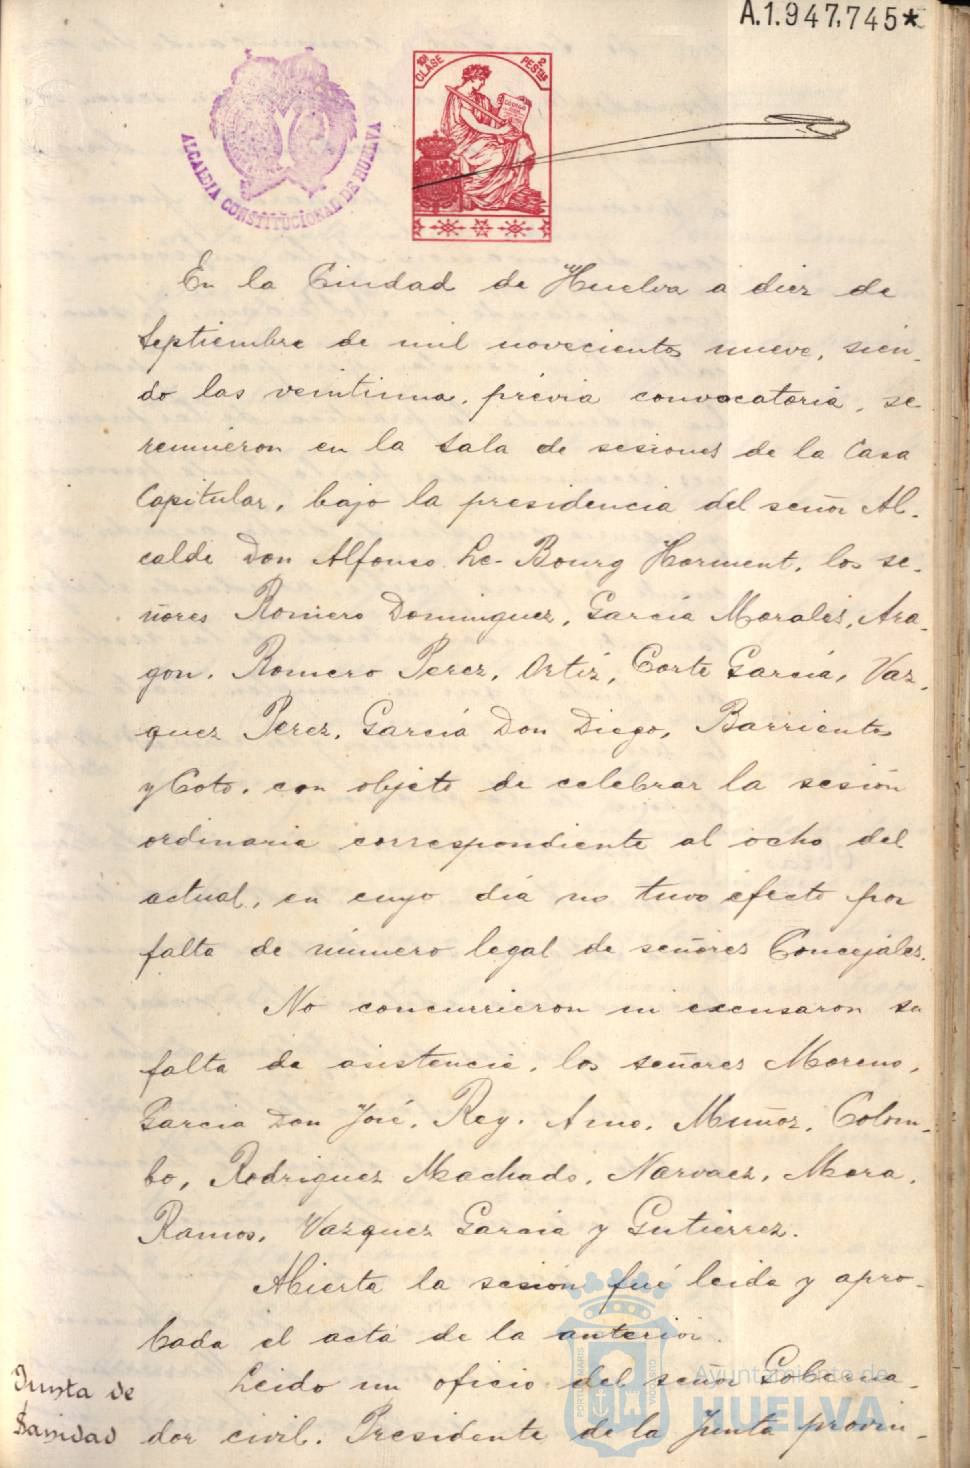 A.1.947.745*
10ª CLASE
2 PESTAS
ALCALDIA CONSTITUCIONAL DE HUELVA
En la Ciudad de Huelva a diez de
Septiembre de mil novecientos nueve, sien-
do las veintiuna, prévia convocatoria, se
reunieron en la Sala de sesiones de la Casa
Capitular, bajo la presidencia del señor Al-
calde Don Alfonso Le-Bourg Horment, los se-
ñores Romero Dominguez, Garcia Morales, Ara-
gon, Romero Perez, Ortiz, Corte García, Vaz-
quez Perez, García Don Diego, Barrientos
y Coto, con objeto de celebrar la sesión
ordinaria correspondiente al ocho del
actual, en cuyo día no tuvo efecto por
falta de número legal de señores Concejales.
No concurrieron ni excusaron su
falta de asistencia, los señores Moreno,
Garcia Don José, Rey, Amo, Muñoz, Colom-
bo, Rodriguez Machado, Narvaez, Mora,
Ramos, Vazquez Garcia y Gutiérrez.
Abierta la sesión fué leida y apro-
bada el acta de la anterior.
Junta de
Sanidad
Leido un oficio del señor Goberna-
dor civil, Presidente de la Junta provin-
Ayuntamiento de
HUELVA